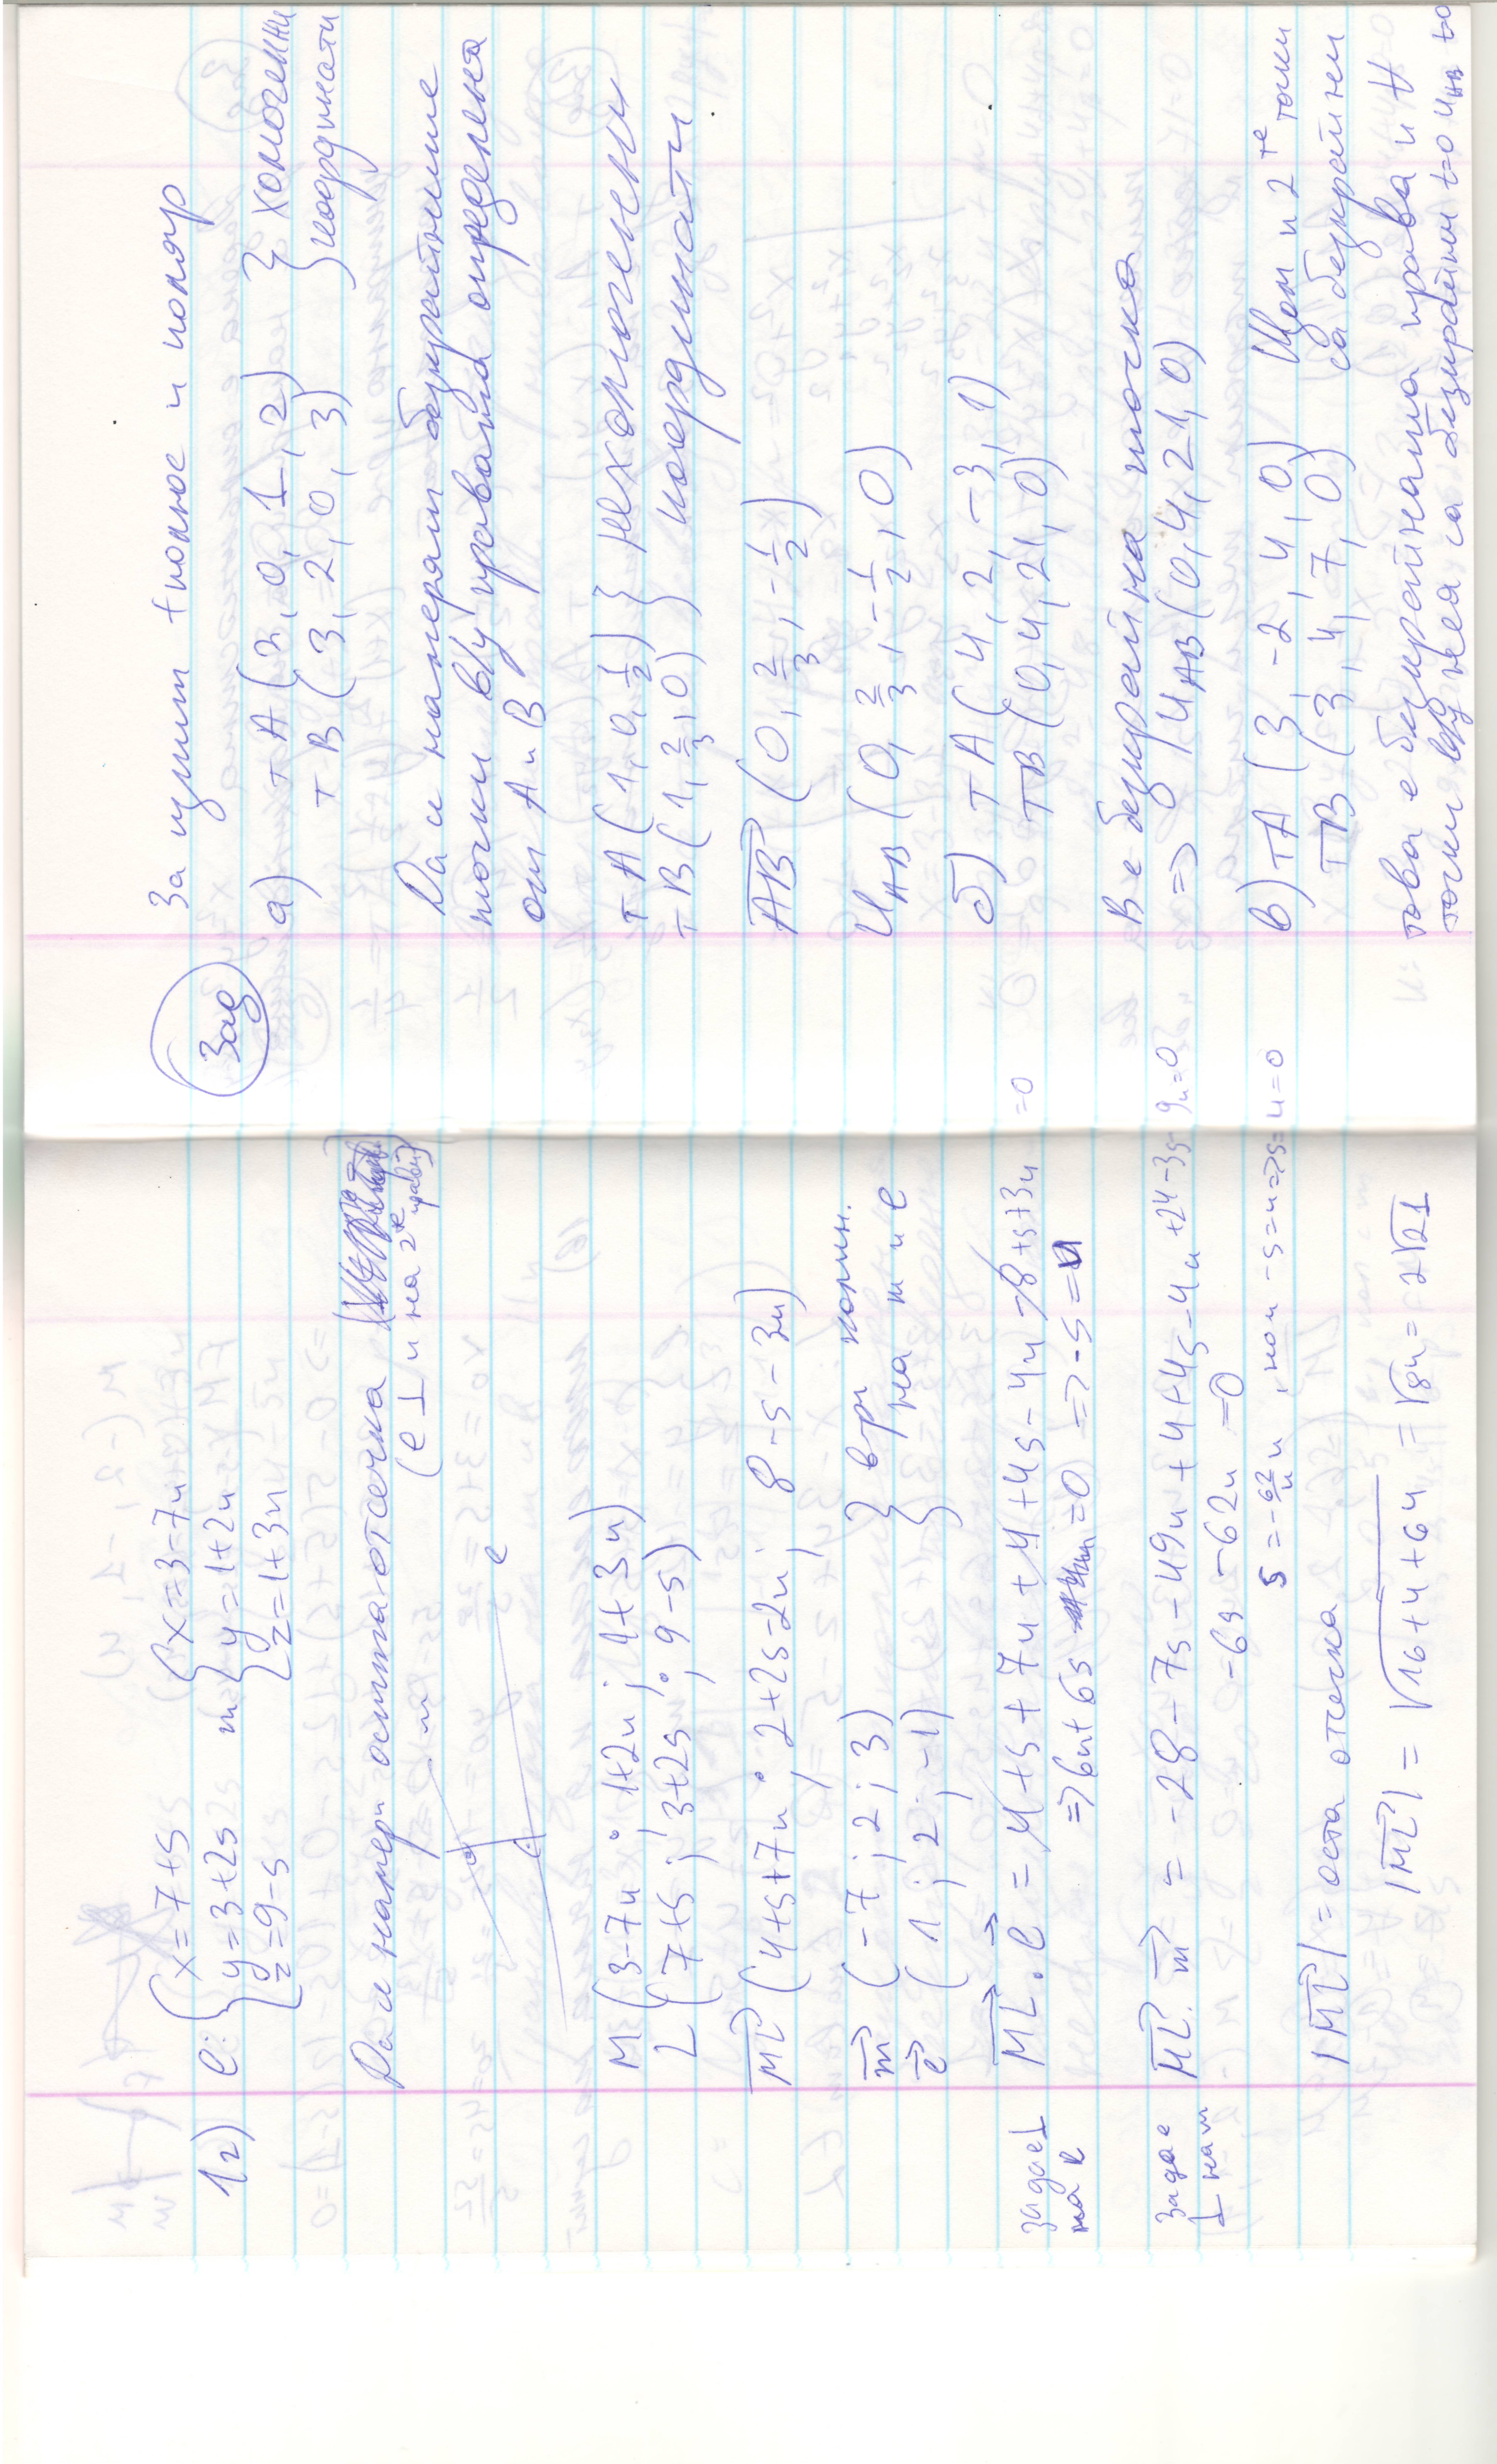 1г) l: { x = 7 + s m { x = 3 - 7u
y = 3 + 2s y = 1 + 2u
z = 9 - s z = 1 + 3u
Да се намери осната отсечка
(l ⊥ и на 2те прави)
m
l
M (3-7u ; 1+2u ; 1+3u)
L (7+s ; 3+2s ; 9-s)
ML (4+s+7u ; 2+2s-2u ; 8-s-3u)
m (-7 ; 2 ; 3) } в-ри колин.
l (1 ; 2 ; -1) } на m и l
задае ⊥ на l
ML . l = 4+s+7u+4+4s-4u-8+s+3u=0
=> 6u+6s=0 => -s=u
задае ⊥ на m
ML . m = -28-7s-49u+4+4s-4u+24-3s-9u=0
-6s-62u=0
s=-62/6 u, но u -s=u=>s=u=0
|ML| = оста отсечка
|ML| = √16+4+64 = √84 = 2√21
Зад
За изпит +полюс и поляр
а) т A (2, 0, 1, 2) } хомогенни
т B (3, 2, 0, 3) } координати
Да се намерят безкрайните
точки в/у правата определена
от A и B
т A (1, 0, 1/2) } нехомогенни
т B (1, 2/3, 0) } координати
AB (0, 2/3, -1/2)
UAB (0, 2/3, -1/2, 0)
б) т A (4, 2, -3, 1)
т B (0, 4, 21, 0)
B е безкрайна точка
=> UAB (0, 4, 21, 0)
в) т A (3, -2, 4, 0) Щом и 2те точки
т B (3, 4, 7, 0) са безкрайни
това е безкрайната права и ∀
точки в/у нея са безкрайни t=0 UAB t=0